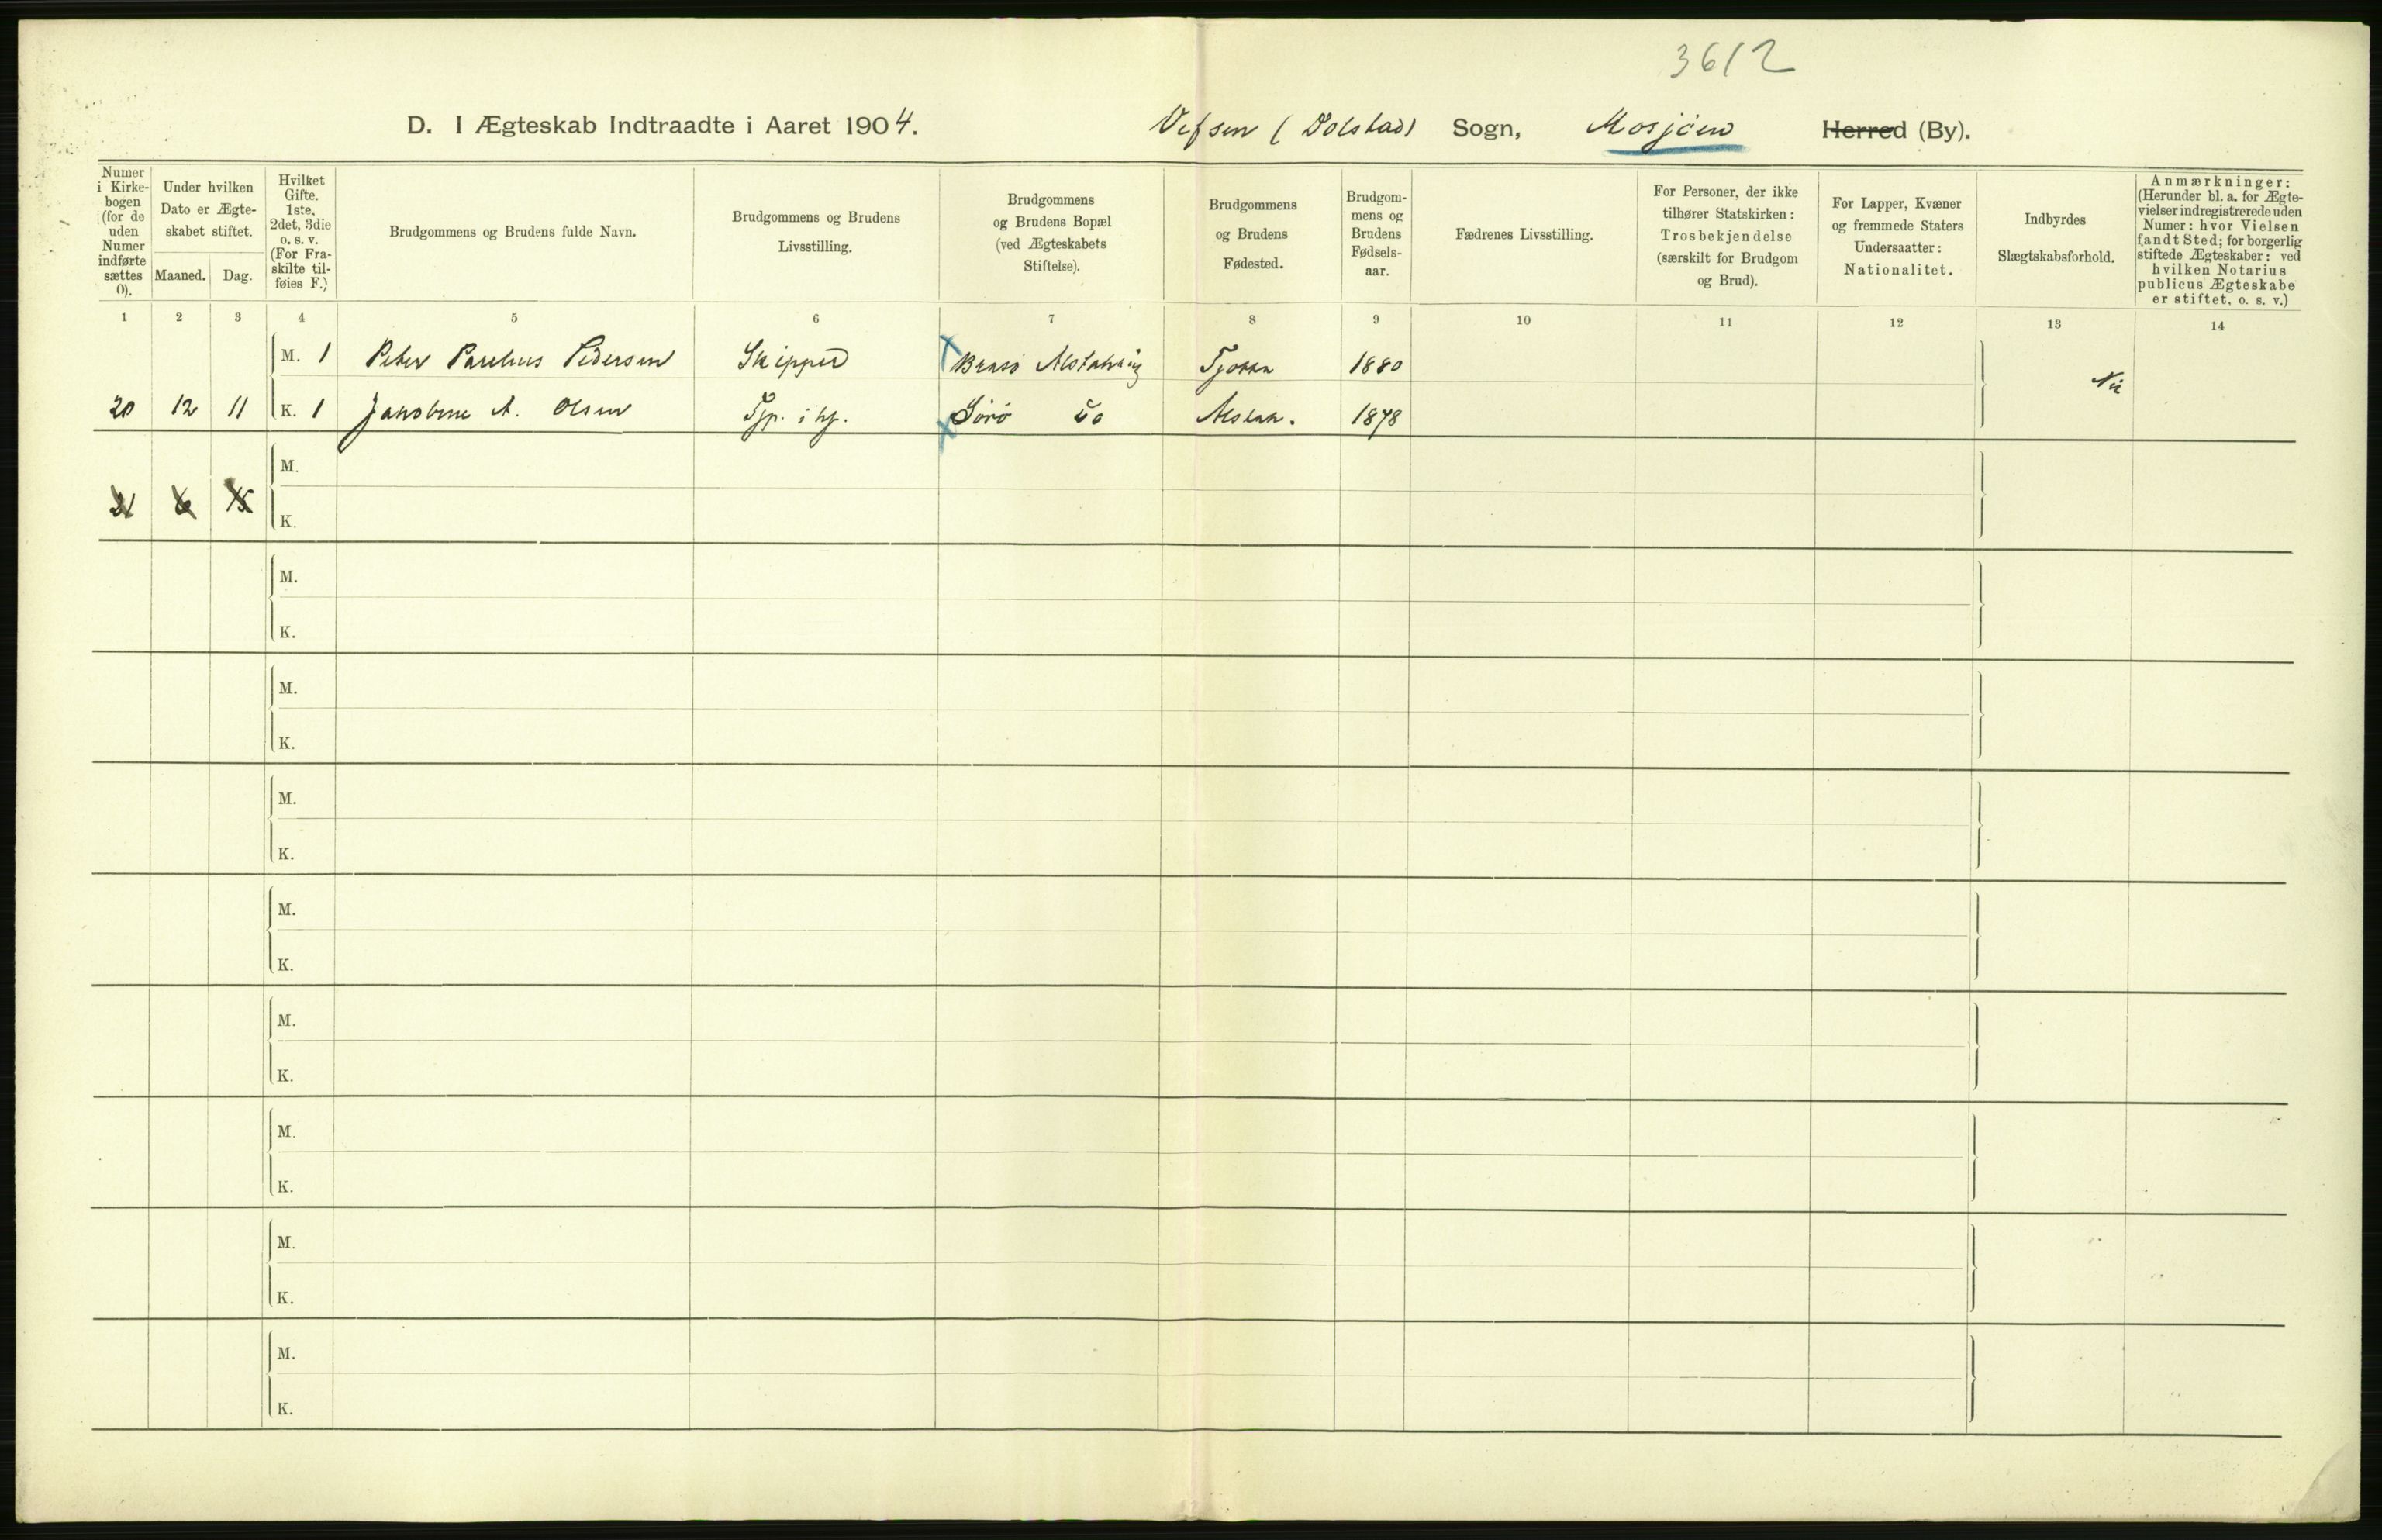 3612
D. I Ægteskab Indtraadte i Aaret 1904. Vefsen (Dolstad) Sogn, Mosjöen Herred (By).
Numer i Kirke-bogen (for de uden Numer indførte sættes 0).
Under hvilken Dato er Ægte-skabet stiftet.
Maaned. Dag.
Hvilket Gifte. 1ste, 2det, 3die o. s. v. (For Fra-skilte til-føies F.)
Brudgommens og Brudens fulde Navn.
Brudgommens og Brudens Livsstilling.
Brudgommens og Brudens Bopæl (ved Ægteskabets Stiftelse).
Brudgommens og Brudens Fødested.
Brudgom-mens og Brudens Fødsels-aar.
Fædrenes Livsstilling.
For Personer, der ikke tilhører Statskirken: Trosbekjendelse (særskilt for Brudgom og Brud).
For Lapper, Kvæner og fremmede Staters Undersaatter: Nationalitet.
Indbyrdes Slægtskabsforhold.
Anmærkninger: (Herunder bl. a. for Ægte-vielser indregistrerede uden Numer: hvor Vielsen fandt Sted; for borgerlig stiftede Ægteskaber: ved hvilken Notarius publicus Ægteskabe er stiftet, o. s. v.)
1 2 3 4 5 6 7 8 9 10 11 12 13 14
M. 1 Peter Parelius Pedersen Skipper Brasö Alstahaug Tjotta 1880
Nei
20 12 11 K. 1 Jakobine A. Olsen Tjp. i hj. Sörö do Alstah. 1878
M.
21 6 15 K.
M.
K.
M.
K.
M.
K.
M.
K.
M.
K.
M.
K.
M.
K.
M.
K.